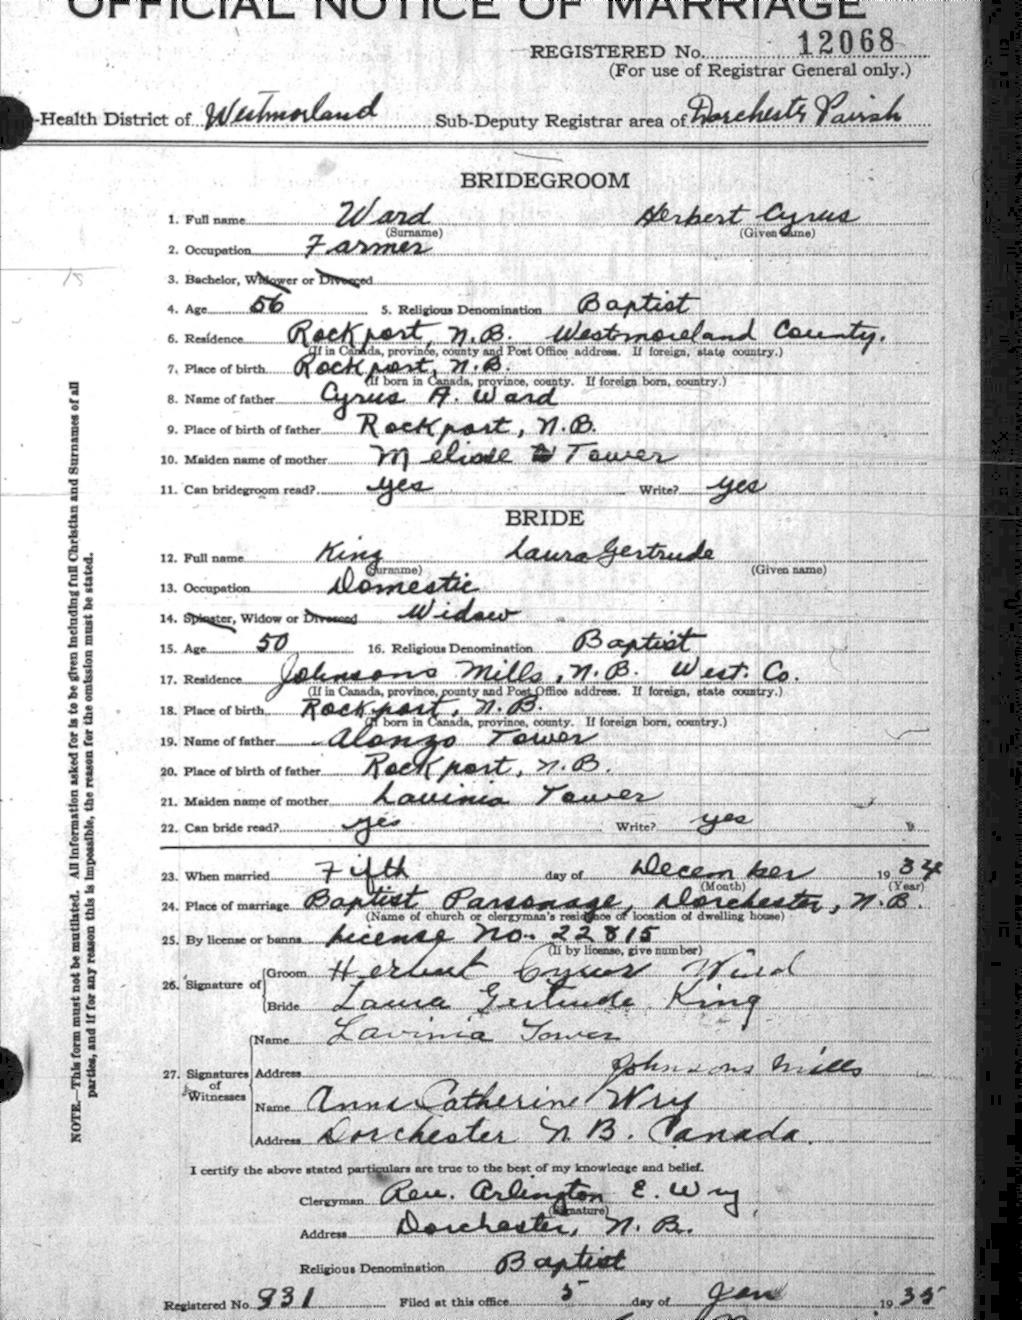 OFFICIAL NOTICE OF MARRIAGE
REGISTERED No. 12068
(For use of Registrar General only.)
-Health District of Westmorland Sub-Deputy Registrar area of Dorchester Parish
BRIDEGROOM
1. Full name Ward Herbert Cyrus
(Surname) (Given name)
2. Occupation Farmer
3. Bachelor, Widower or Divorced
4. Age 56 5. Religious Denomination Baptist
6. Residence Rockport, N.B. Westmoreland County.
(If in Canada, province, county and Post Office address. If foreign, state country.)
7. Place of birth Rockport, N.B.
(If born in Canada, province, county. If foreign born, country.)
8. Name of father Cyrus A. Ward
9. Place of birth of father Rockport, N.B.
10. Maiden name of mother Tower
11. Can bridegroom read? yes Write? yes
BRIDE
12. Full name King Laura Gertrude
(Surname) (Given name)
13. Occupation Domestic
14. Spinster, Widow or Divorced Widow
15. Age 50 16. Religious Denomination Baptist
17. Residence Johnsons Mills, N.B. West. Co.
(If in Canada, province, county and Post Office address. If foreign, state country.)
18. Place of birth Rockport, N.B.
(If born in Canada, province, county. If foreign born, country.)
19. Name of father Alonzo Tower
20. Place of birth of father Rockport, N.B.
21. Maiden name of mother Lavinia Tower
22. Can bride read? yes Write? yes
23. When married Fifth day of December 19 34
(Month) (Year)
24. Place of marriage Baptist Parsonage, Dorchester, N.B.
(Name of church or clergyman's residence or location of dwelling house)
25. By license or banns License No. 22815
(If by license, give number)
26. Signature of Groom Herbert Cyrus Ward
Bride Laura Gertrude King
27. Signatures of Witnesses
Name Lavinia Tower
Address Johnsons Mills
Name Anna Catherine Wry
Address Dorchester N.B. Canada.
I certify the above stated particulars are true to the best of my knowledge and belief.
Clergyman Rev. Arlington E. Wry
(Signature)
Address Dorchester, N.B.
Religious Denomination Baptist
Registered No. 931 Filed at this office 5 day of Jan 19 35
NOTE.—This form must not be mutilated. All information asked for is to be given including full Christian and Surnames of all
parties, and if for any reason this is impossible, the reason for the omission must be stated.